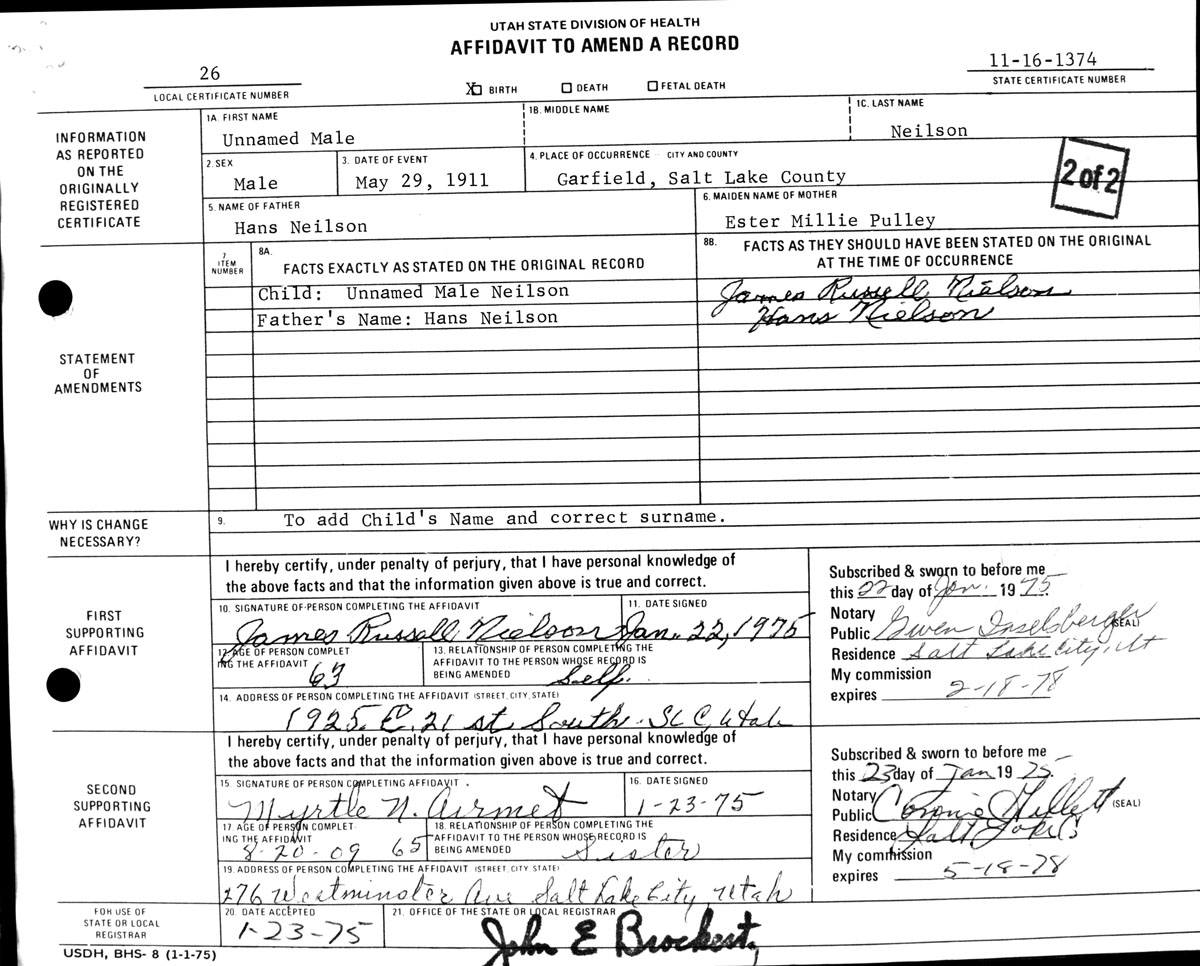 UTAH STATE DIVISION OF HEALTH
AFFIDAVIT TO AMEND A RECORD
26
LOCAL CERTIFICATE NUMBER
X BIRTH DEATH FETAL DEATH
11-16-1374
STATE CERTIFICATE NUMBER
INFORMATION AS REPORTED ON THE ORIGINALLY REGISTERED CERTIFICATE
1A. FIRST NAME 1B. MIDDLE NAME 1C. LAST NAME
Unnamed Male Neilson
2. SEX 3. DATE OF EVENT 4. PLACE OF OCCURRENCE - CITY AND COUNTY
Male May 29, 1911 Garfield, Salt Lake County
2 of 2
5. NAME OF FATHER 6. MAIDEN NAME OF MOTHER
Hans Neilson Ester Millie Pulley
STATEMENT OF AMENDMENTS
7 ITEM NUMBER
8A. FACTS EXACTLY AS STATED ON THE ORIGINAL RECORD
8B. FACTS AS THEY SHOULD HAVE BEEN STATED ON THE ORIGINAL AT THE TIME OF OCCURRENCE
Child: Unnamed Male Neilson James Russell Nielson
Father's Name: Hans Neilson Hans Nielson
WHY IS CHANGE NECESSARY?
9. To add Child's Name and correct surname.
FIRST SUPPORTING AFFIDAVIT
I hereby certify, under penalty of perjury, that I have personal knowledge of
the above facts and that the information given above is true and correct.
10. SIGNATURE OF PERSON COMPLETING THE AFFIDAVIT 11. DATE SIGNED
James Russell Nielson Jan. 22, 1975
12. AGE OF PERSON COMPLETING THE AFFIDAVIT
63
13. RELATIONSHIP OF PERSON COMPLETING THE AFFIDAVIT TO THE PERSON WHOSE RECORD IS BEING AMENDED
Self.
14. ADDRESS OF PERSON COMPLETING THE AFFIDAVIT (STREET, CITY, STATE)
1925 E. 21 st South - SLC, Utah
Subscribed & sworn to before me
this 22 day of Jan. 19 75.
Notary Public Gwen Inselsberger (SEAL)
Residence Salt Lake City, Ut
My commission expires 2-18-78
SECOND SUPPORTING AFFIDAVIT
I hereby certify, under penalty of perjury, that I have personal knowledge of
the above facts and that the information given above is true and correct.
15. SIGNATURE OF PERSON COMPLETING AFFIDAVIT. 16. DATE SIGNED
Myrtle N. Airmet 1-23-75
17. AGE OF PERSON COMPLETING THE AFFIDAVIT
8-20-09 65
18. RELATIONSHIP OF PERSON COMPLETING THE AFFIDAVIT TO THE PERSON WHOSE RECORD IS BEING AMENDED
Sister
19. ADDRESS OF PERSON COMPLETING THE AFFIDAVIT (STREET, CITY, STATE)
276 Westminster Ave Salt Lake City, Utah
Subscribed & sworn to before me
this 23 day of Jan 19 75.
Notary Public Connie (SEAL)
Residence Salt Lake
My commission expires 5-18-78
FOR USE OF STATE OR LOCAL REGISTRAR
20. DATE ACCEPTED 21. OFFICE OF THE STATE OR LOCAL REGISTRAR
1-23-75 John E Brockert
USDH, BHS- 8 (1-1-75)